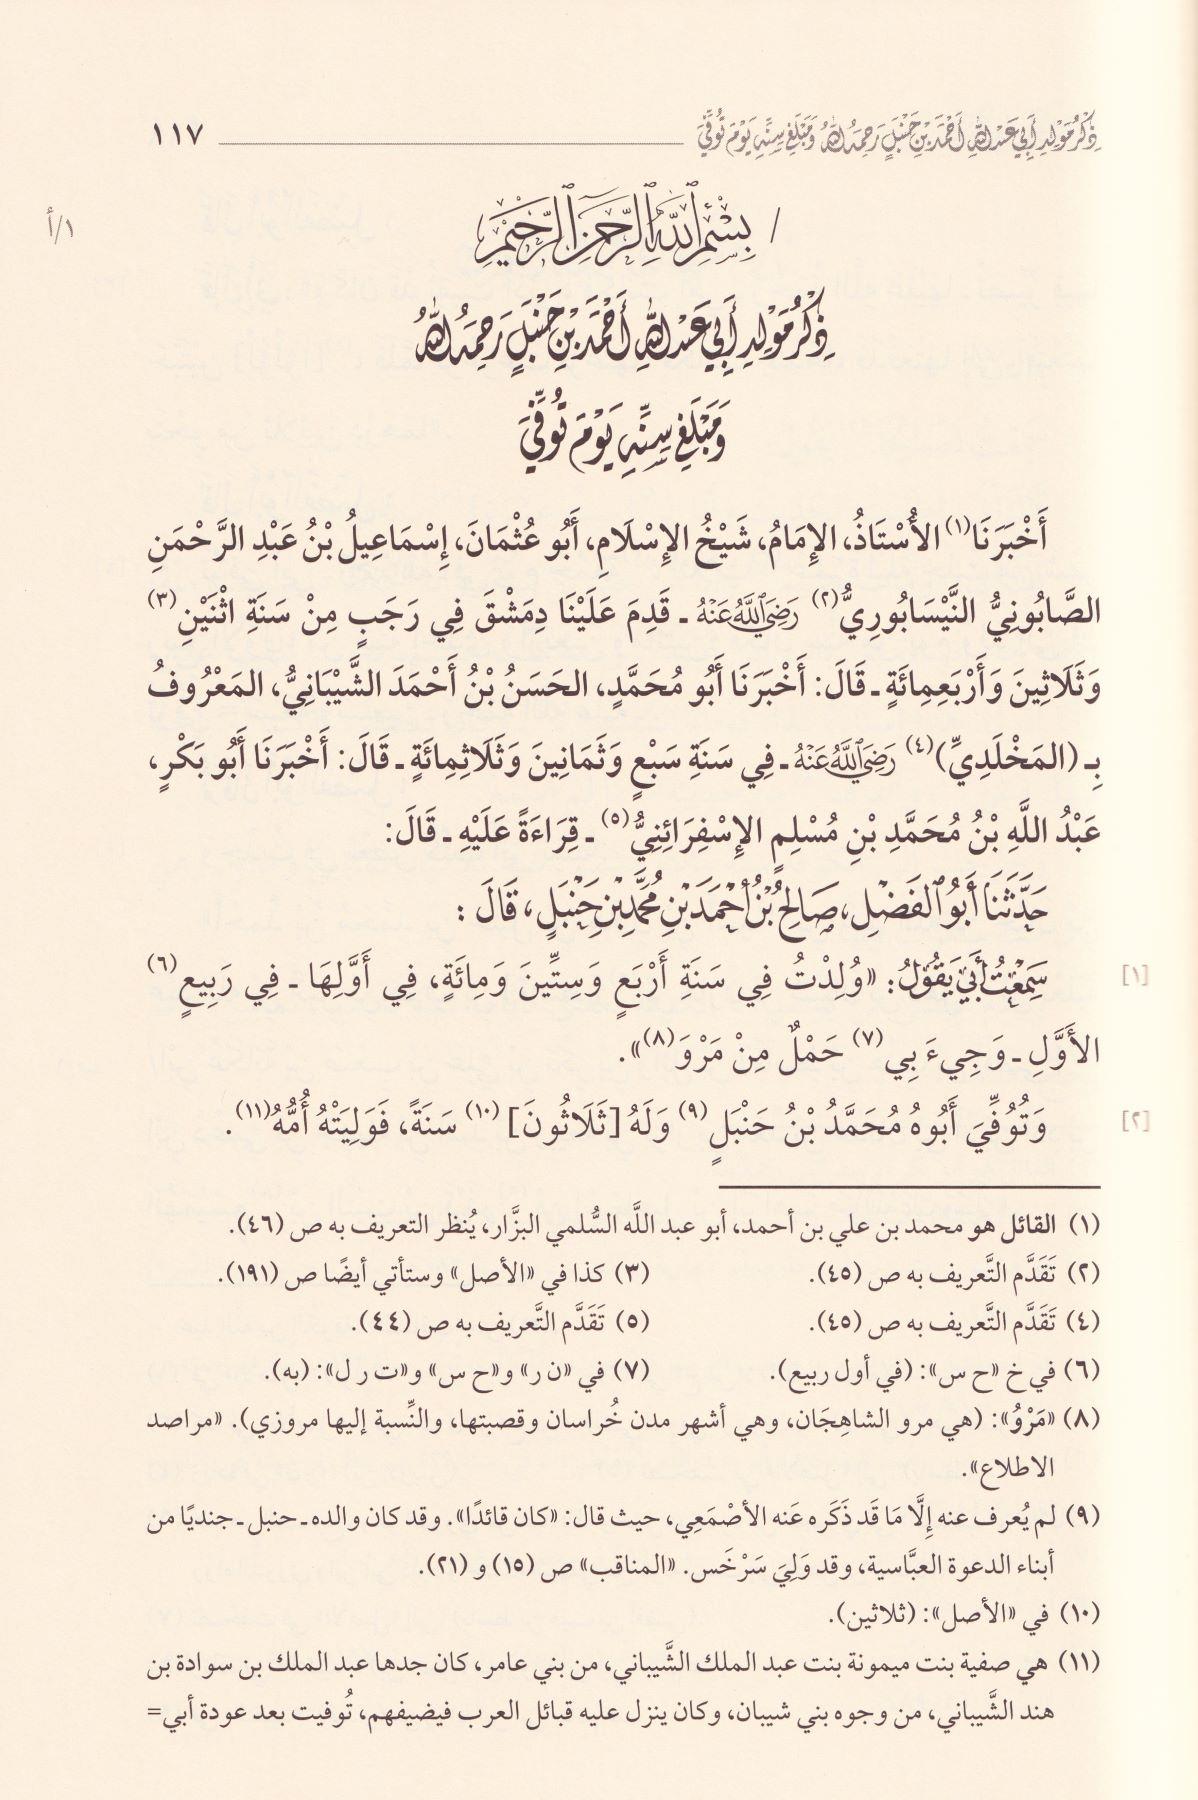 ذِكْرُ مَوْلِدِ أَبِي عَبْدِ اللهِ أَحْمَدَ بْنِ حَنْبَلٍ رَحِمَهُ اللهُ وَمَبْلَغِ سِنِّهِ يَوْمَ تُوُفِّيَ ١١٧
/ بِسْمِ اللَّهِ الرَّحْمَنِ الرَّحِيمِ ١/أ
ذِكْرُ مَوْلِدِ أَبِي عَبْدِ اللهِ أَحْمَدَ بْنِ حَنْبَلٍ رَحِمَهُ اللهُ
وَمَبْلَغِ سِنِّهِ يَوْمَ تُوُفِّيَ
أَخْبَرَنَا(١) الأُسْتَاذُ، الإِمَامُ، شَيْخُ الإِسْلَامِ، أَبُو عُثْمَانَ، إِسْمَاعِيلُ بْنُ عَبْدِ الرَّحْمَنِ
الصَّابُونِيُّ النَّيْسَابُورِيُّ(٢) رَضِيَ اللَّهُ عَنْهُ ـ قَدِمَ عَلَيْنَا دِمَشْقَ فِي رَجَبٍ مِنْ سَنَةِ اثْنَيْنِ(٣)
وَثَلَاثِينَ وَأَرْبَعِمِائَةٍ ـ قَالَ: أَخْبَرَنَا أَبُو مُحَمَّدٍ، الحَسَنُ بْنُ أَحْمَدَ الشَّيْبَانِيُّ، المَعْرُوفُ
بِـ (المَخْلَدِيِّ)(٤) رَضِيَ اللَّهُ عَنْهُ ـ فِي سَنَةِ سَبْعٍ وَثَمَانِينَ وَثَلَاثِمِائَةٍ ـ قَالَ: أَخْبَرَنَا أَبُو بَكْرٍ،
عَبْدُ اللَّهِ بْنُ مُحَمَّدِ بْنِ مُسْلِمٍ الإِسْفِرَائِنِيُّ(٥) ـ قِرَاءَةً عَلَيْهِ ـ قَالَ:
حَدَّثَنَا أَبُو الفَضْلِ، صَالِحُ بْنُ أَحْمَدَ بْنِ مُحَمَّدِ بْنِ حَنْبَلٍ، قَالَ:
[١] سَمِعْتُ أَبِي يَقُولُ: «وُلِدْتُ فِي سَنَةِ أَرْبَعٍ وَسِتِّينَ وَمِائَةٍ، فِي أَوَّلِهَا ـ فِي رَبِيعٍ(٦)
الأَوَّلِ ـ وَجِيءَ بِي(٧) حَمْلٌ مِنْ مَرْوَ(٨)».
[٢] وَتُوُفِّيَ أَبُوهُ مُحَمَّدُ بْنُ حَنْبَلٍ(٩) وَلَهُ [ثَلَاثُونَ](١٠) سَنَةً، فَوَلِيَتْهُ أُمُّهُ(١١).
(١) القائل هو محمد بن علي بن أحمد، أبو عبد اللَّه السُّلمي البزَّار، يُنظر التعريف به ص (٤٦).
(٢) تَقَدَّم التَّعريف به ص (٤٥). (٣) كذا في «الأصل» وستأتي أيضًا ص (١٩١).
(٤) تَقَدَّم التَّعريف به ص (٤٥). (٥) تَقَدَّم التَّعريف به ص (٤٤).
(٦) في خ «ح س»: (في أول ربيع). (٧) في «ن ر» و«ح س» و«ت ر ل»: (به).
(٨) «مَرْوُ»: (هي مرو الشاهِجَان، وهي أشهر مدن خُراسان وقصبتها، والنِّسبة إليها مروزي). «مراصد
الاطلاع».
(٩) لم يُعرف عنه إِلَّا مَا قَد ذَكَره عَنه الأصْمَعِي، حيث قال: «كان قائدًا». وقد كان والده ـ حنبل ـ جنديًا من
أبناء الدعوة العبَّاسية، وقد وَلِيَ سَرْخَس. «المناقب» ص (١٥) و (٢١).
(١٠) في «الأصل»: (ثلاثين).
(١١) هي صفية بنت ميمونة بنت عبد الملك الشَّيباني، من بني عامر، كان جدها عبد الملك بن سوادة بن
هند الشَّيباني، من وجوه بني شيبان، وكان ينزل عليه قبائل العرب فيضيفهم، تُوفيت بعد عودة أبي=